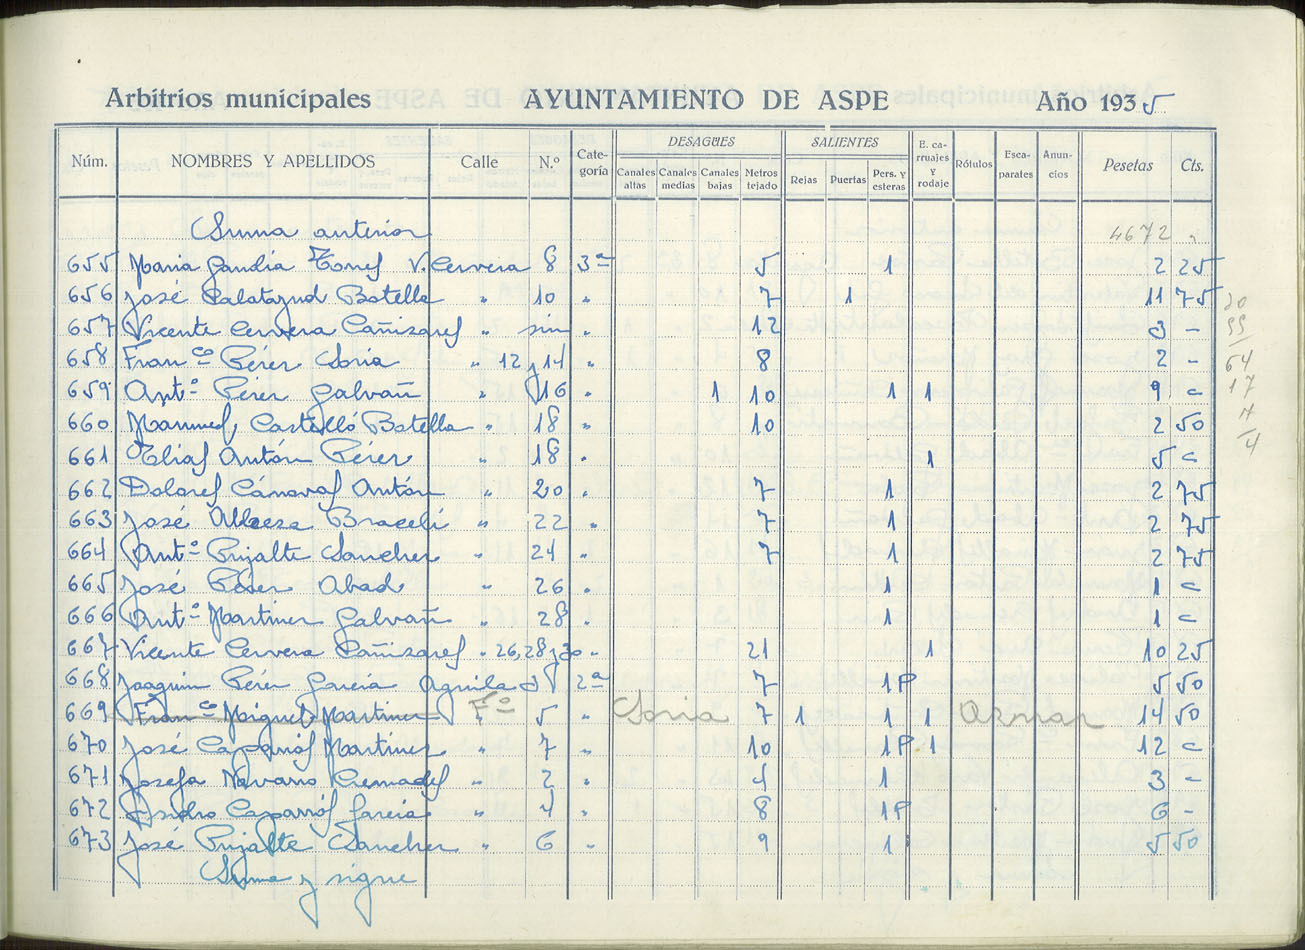 Arbitrios municipales AYUNTAMIENTO DE ASPE Año 1935
Núm. NOMBRES Y APELLIDOS Calle N.º Cate-goría DESAGÜES Canales altas Canales medias Canales bajas Metros tejado SALIENTES Rejas Puertas Pers. y esteras E. ca-rruajes y rodaje Rótulos Esca-parates Anun-cios Pesetas Cts.
Suma anterior 4672 "
655 Maria Gandia Torres V. Cervera 8 3ª 5 1 2 25
656 José Calatayud Botella " 10 " 7 1 11 75
657 Vicente Cervera Cañizares " sin " 12 3 -
658 Franco Pérez Soria " 12 y 14 " 8 2 -
659 Antº Pérez Galvañ " 16 " 1 10 1 1 9 "
660 Manuel Castelló Botella " 18 " 10 2 50
661 Elias Antón Pérez " 18 " 1 5 "
662 Dolores Cánovas Antón " 20 " 7 1 2 75
663 José Alberza Braceli " 22 " 7 1 2 75
664 Antº Pujalte Sanchez " 24 " 7 1 2 75
665 José Pérez Abad " 26 " 1 1 "
666 Antº Martinez Galvañ " 28 " 1 1 "
667 Vicente Cervera Cañizares " 26, 28 y 30 " 21 1 10 25
668 Joaquin Pérez Garcia Aguila 2ª 7 1P 5 50
669 Franco Miguel Martinez Fº " 5 " Soria 7 1 1 1 Aznar 14 50
670 José Caparrós Martinez " 7 " 10 1P 1 12 "
671 Josefa Navarro Cremades " 2 " 4 1 3 "
672 Isidro Caparrós Garcia " 4 " 8 1P 6 -
673 José Pujalte Sanchez " 6 " 9 1 5 50
Suma y sigue